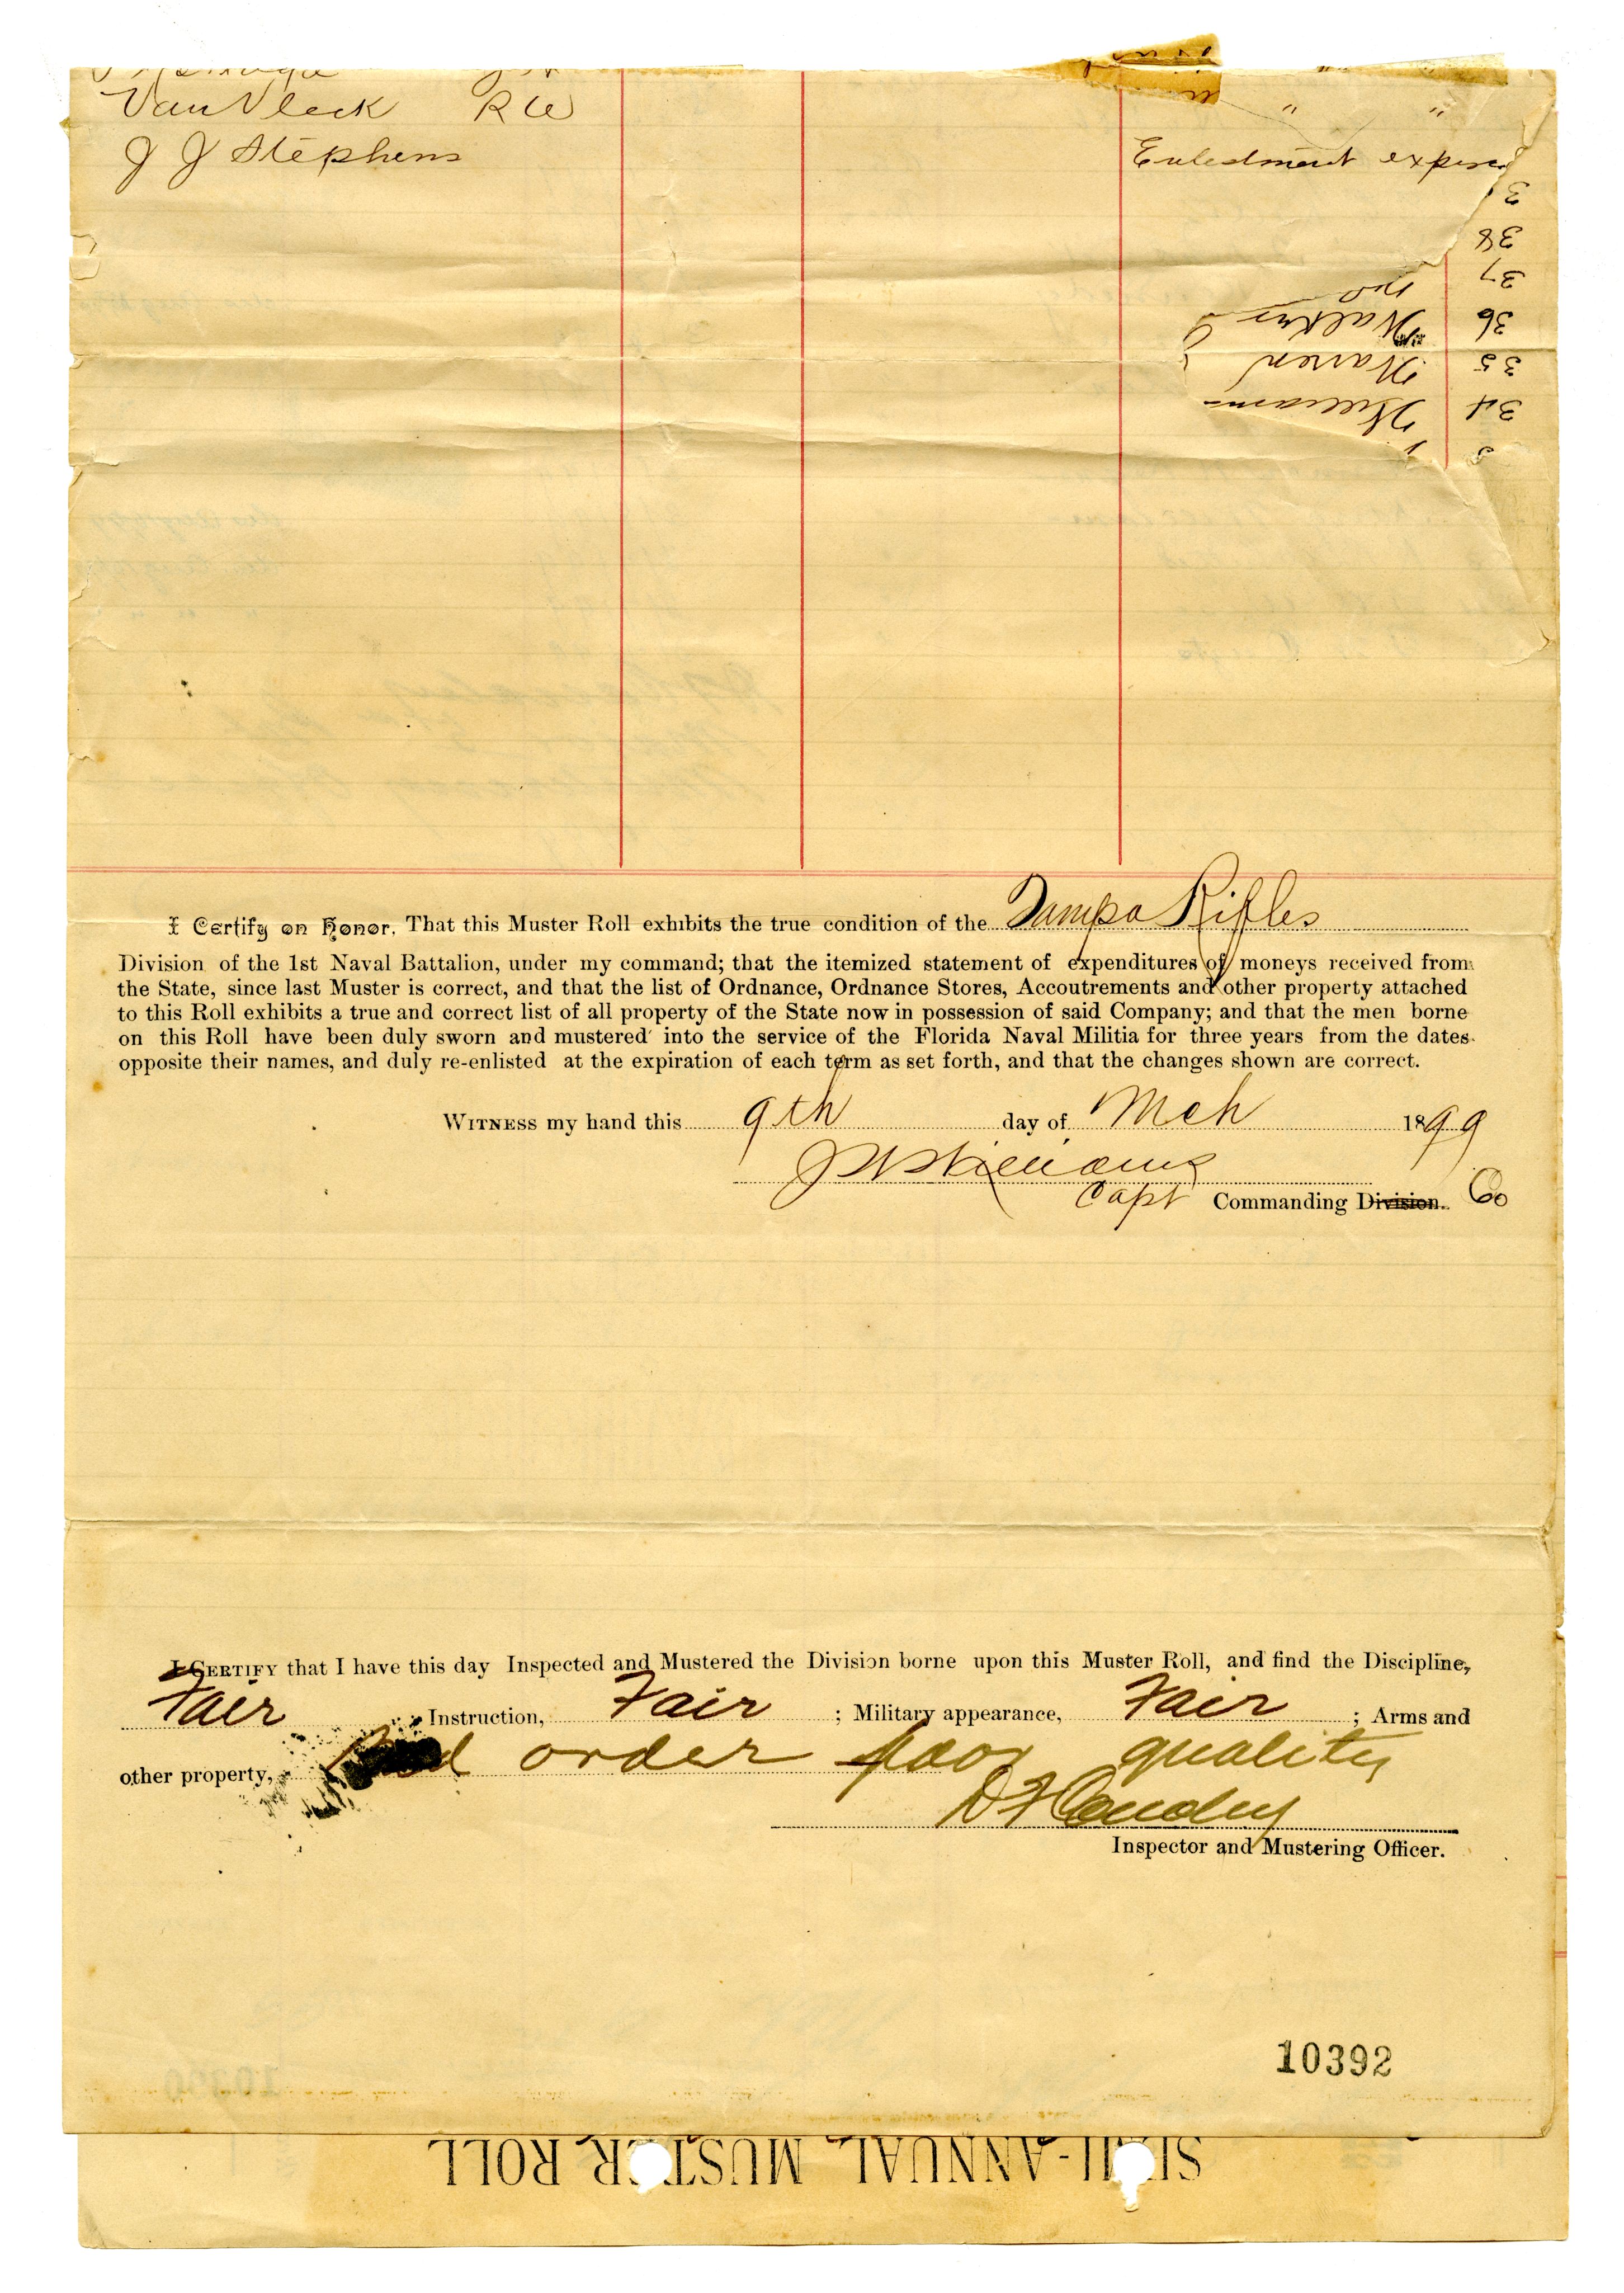 Van Vleck R W " "
J J Stephens Enlestment expired
38
37
36 Walker
35 Warren
34 Williams
I Certify on Honor, That this Muster Roll exhibits the true condition of the Tampa Rifles
Division of the 1st Naval Battalion, under my command; that the itemized statement of expenditures of moneys received from
the State, since last Muster is correct, and that the list of Ordnance, Ordnance Stores, Accoutrements and other property attached
to this Roll exhibits a true and correct list of all property of the State now in possession of said Company; and that the men borne
on this Roll have been duly sworn and mustered into the service of the Florida Naval Militia for three years from the dates
opposite their names, and duly re-enlisted at the expiration of each term as set forth, and that the changes shown are correct.
WITNESS my hand this 9th day of Mch 1899
Williams
Capt Commanding Division. Co
I CERTIFY that I have this day Inspected and Mustered the Division borne upon this Muster Roll, and find the Discipline,
Fair Instruction, Fair ; Military appearance, Fair ; Arms and
other property, order poor quality
Inspector and Mustering Officer.
10392
SEMI-ANNUAL MUSTER ROLL